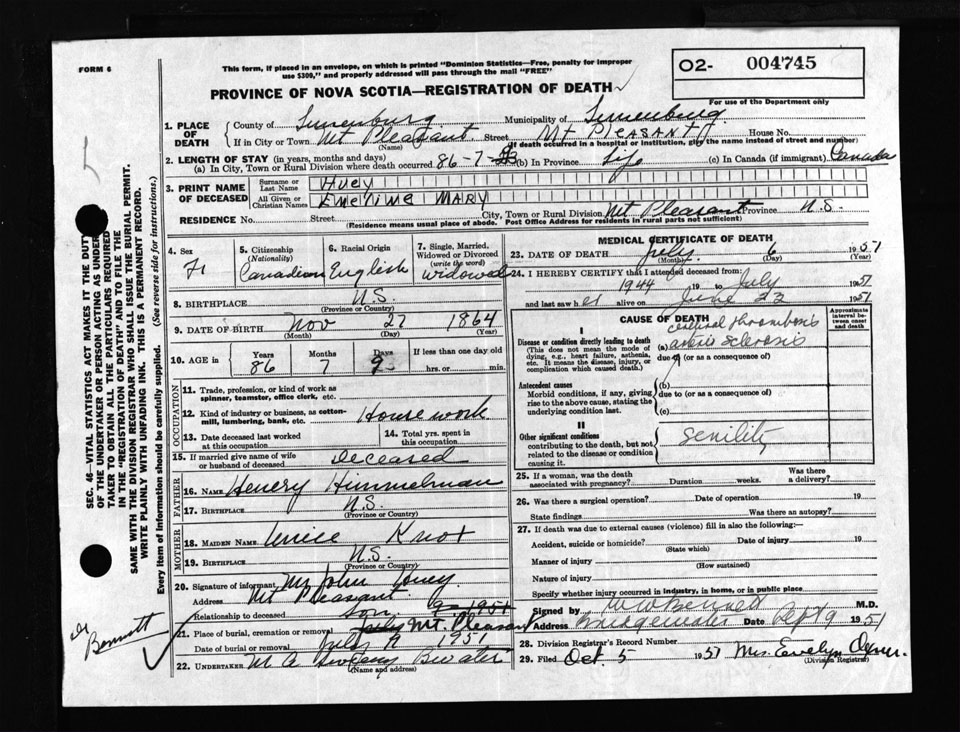 FORM 6
This form, if placed in an envelope, on which is printed "Dominion Statistics—Free, penalty for improper
use $300," and properly addressed will pass through the mail "FREE"
O2- 004745
For use of the Department only
PROVINCE OF NOVA SCOTIA—REGISTRATION OF DEATH
1. PLACE OF DEATH
County of Lunenburg Municipality of Lunenburg
If in City or Town Mt Pleasant (Name) Street Mt Pleasant House No.
(If death occurred in a hospital or institution, give the name instead of street and number)
2. LENGTH OF STAY (in years, months and days)
(a) In City, Town or Rural Division where death occurred 86-7- (b) In Province Life (c) In Canada (if immigrant) Canada
3. PRINT NAME OF DECEASED
Surname or Last Name Huey
All Given or Christian Names Emeline MARY
RESIDENCE No. Street City, Town or Rural Division Mt Pleasant Province N.S.
(Residence means usual place of abode. Post Office Address for Residents in rural parts not sufficient)
4. Sex
5. Citizenship (Nationality) Canadian
6. Racial Origin English
7. Single, Married, Widowed or Divorced (write the word) Widowed
8. BIRTHPLACE N.S.
(Province or Country)
9. DATE OF BIRTH Nov 27 1864
(Month) (Day) (Year)
10. AGE in Years 86 Months 7 Days 9 If less than one day old hrs. or min.
OCCUPATION
11. Trade, profession, or kind of work as spinner, teamster, office clerk, etc.
12. Kind of industry or business, as cotton-mill, lumbering, bank, etc. House work
13. Date deceased last worked at this occupation
14. Total yrs. spent in this occupation
15. If married give name of wife or husband of deceased Deceased
FATHER
16. NAME Henery Himmelman
17. BIRTHPLACE N.S.
(Province or Country)
MOTHER
18. MAIDEN NAME Knox
19. BIRTHPLACE N.S.
(Province or Country)
20. Signature of informant Mr John Huey
Address Mt Pleasant
Relationship to deceased son 1951
21. Place of burial, cremation or removal Mt. Pleasant
Date of burial or removal July 1951
22. UNDERTAKER M A Sweeny B'water
(Name and address)
MEDICAL CERTIFICATE OF DEATH
23. DATE OF DEATH July 6 1951
(Month) (Day) (Year)
24. I HEREBY CERTIFY that I attended deceased from
1944 19 to July 1951
and last saw her alive on June 23 1951
CAUSE OF DEATH
Approximate interval between onset and death
I
Disease or condition directly leading to death
(This does not mean the mode of dying, e.g., heart failure, asthenia, etc. It means the disease, injury, or complication which caused death.)
cerebral thrombosis
(a) arterio sclerosis
due to (or as a consequence of)
Antecedent causes
Morbid conditions, if any, giving rise to the above cause, stating the underlying condition last.
(b)
due to (or as a consequence of)
(c)
II
Other significant conditions
contributing to the death, but not related to the disease or condition causing it.
Senility
25. If a woman, was the death associated with pregnancy? Duration weeks. Was there a delivery?
26. Was there a surgical operation? Date of operation 19
State findings Was there an autopsy?
27. If death was due to external causes (violence) fill in also the following:—
Accident, suicide or homicide? Date of injury 19
(State which)
Manner of injury
(How sustained)
Nature of injury
Specify whether injury occurred in Industry, in home, or in public place
Signed by W W Bennett M.D.
Address Bridgewater Date Sept 9 1951
28. Division Registrar's Record Number
29. Filed Oct. 5 1951 Mrs. Evelyn
(Division Registrar)
SEC. 46—VITAL STATISTICS ACT MAKES IT THE DUTY
OF THE UNDERTAKER OR PERSON ACTING AS UNDER-
TAKER TO OBTAIN ALL THE PARTICULARS REQUIRED
IN THE "REGISTRATION OF DEATH" AND TO FILE THE
SAME WITH THE DIVISION REGISTRAR WHO SHALL ISSUE THE BURIAL PERMIT.
WRITE PLAINLY WITH UNFADING INK. THIS IS A PERMANENT RECORD.
Every item of information should be carefully supplied. (See reverse side for instructions.)
Dr Bennett